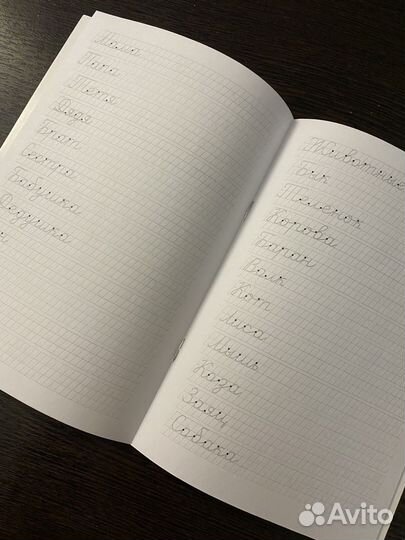 Мама
Папа
Тетя
Дядя
Брат
Сестра
Бабушка
Дедушка
Животные
Бык
Теленок
Корова
Баран
Волк
Кот
Лиса
Мышь
Коза
Заяц
Собака
Avito